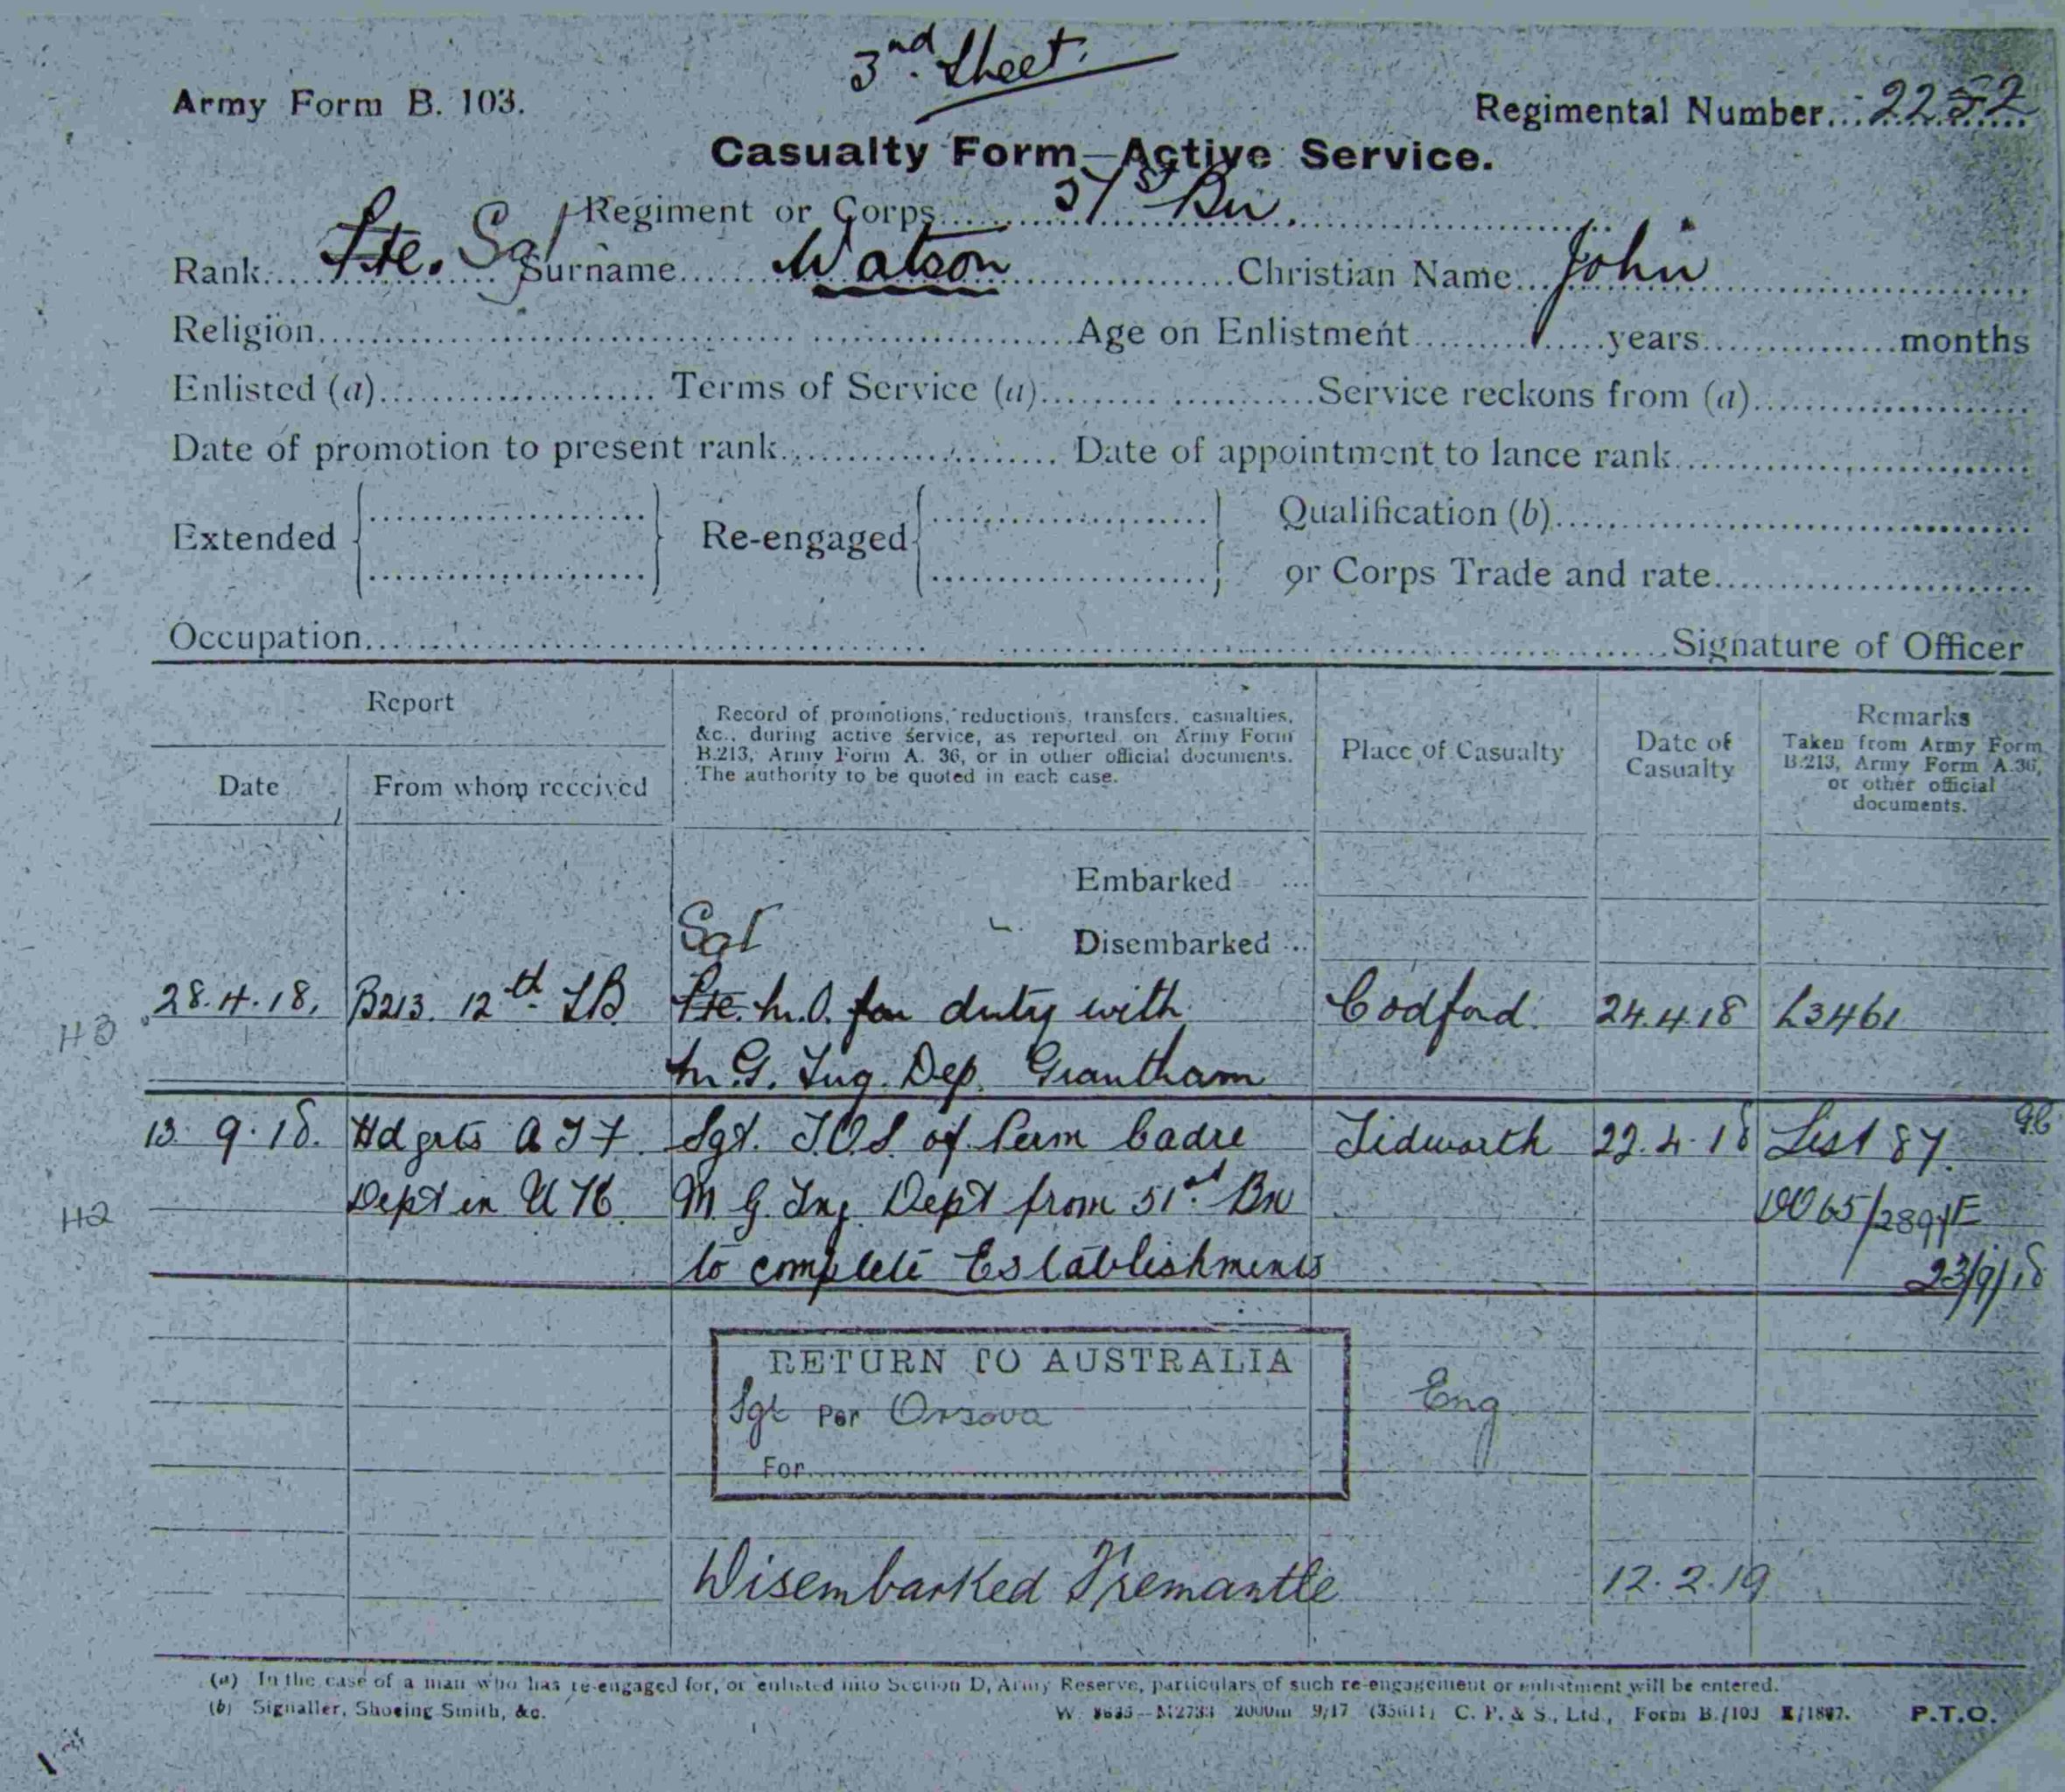 3nd Sheet.
Army Form B. 103.
Regimental Number 2252
Casualty Form—Active Service.
Regiment or Corps 51st Bn.
Rank Pte. Sgt Surname Watson Christian Name John
Religion Age on Enlistment years months
Enlisted (a) Terms of Service (a) Service reckons from (a)
Date of promotion to present rank Date of appointment to lance rank
Extended Re-engaged Qualification (b)
or Corps Trade and rate
Occupation Signature of Officer
Report
Date
From whom received
Record of promotions, reductions, transfers, casualties,
&c., during active service, as reported on Army Form
B.213, Army Form A. 36, or in other official documents.
The authority to be quoted in each case.
Place of Casualty
Date of
Casualty
Remarks
Taken from Army Form
B.213, Army Form A.36,
or other official
documents.
Embarked ...
Sgt
Disembarked ...
28.4.18. B213. 12th T.B. Pte. M.O. for duty with Codford. 24.4.18 L3461
H3
M.G. Trg. Dep. Grantham
13.9.18. Hdqrts A I F Sgt. T.O.S. of Perm Cadre Tidworth 22.4.18 List 87. 96
H2
Dept in U K. M. G. Trg. Dept from 51st Bn
to complete Establishments
23/9/18
RETURN TO AUSTRALIA
Sgt per Orsova Eng
For
Disembarked Fremantle 12.2.19
(a) In the case of a man who has re-engaged for, or enlisted into Section D, Army Reserve, particulars of such re-engagement or enlistment will be entered.
(b) Signaller, Shoeing Smith, &c.
2000m 9/17 C. P. & S., Ltd., Form B./103 P.T.O.